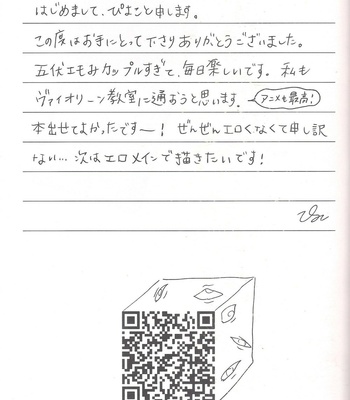 はじめまして、ぴよこと申します。
この度はお手にとって下さりありがとうございました。
五伏エモみカップルすぎて、毎日楽しいです。私も
ヴァイオリーン教室に通おうと思います。
アニメも最高!
本出せてよかったです〜! ぜんぜんエロくなくて申し訳
ない… 次はエロメインで描きたいです!